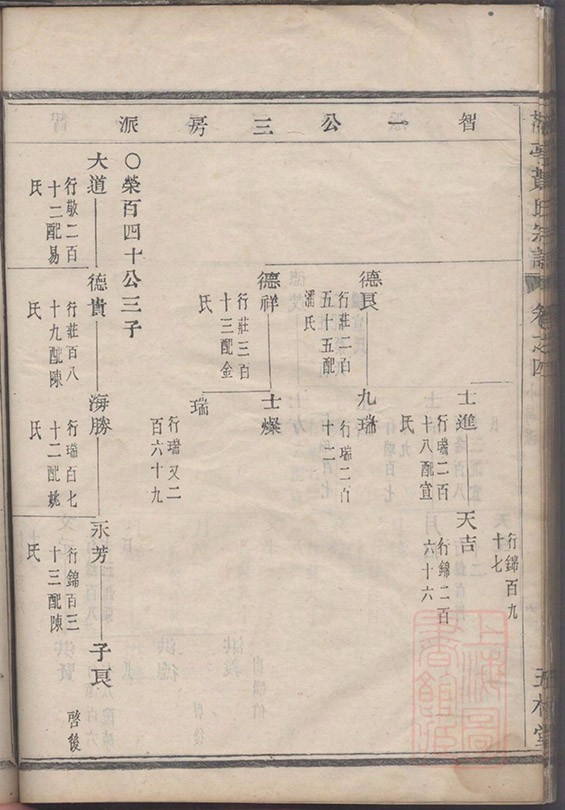 氏宗譜
卷之四
堂
智一公三房派
行錦百九
十七
士進
行瑞二百
十八配宣
氏
天吉
行錦二百
六十六
德良
行莊二百
五十五配
潘氏
九瑞
行瑞二百
十二
德祥
行莊三百
十三配金
氏
士燦
瑞
行瑞又二
百六十九
〇榮百四十公三子
大道
行敬二百
十二配易
氏
德貴
行莊百八
十九配陳
氏
海勝
行瑞百七
十二配姚
氏
永芳
行錦百三
十三配陳
氏
子良
啓後
上海圖書館藏